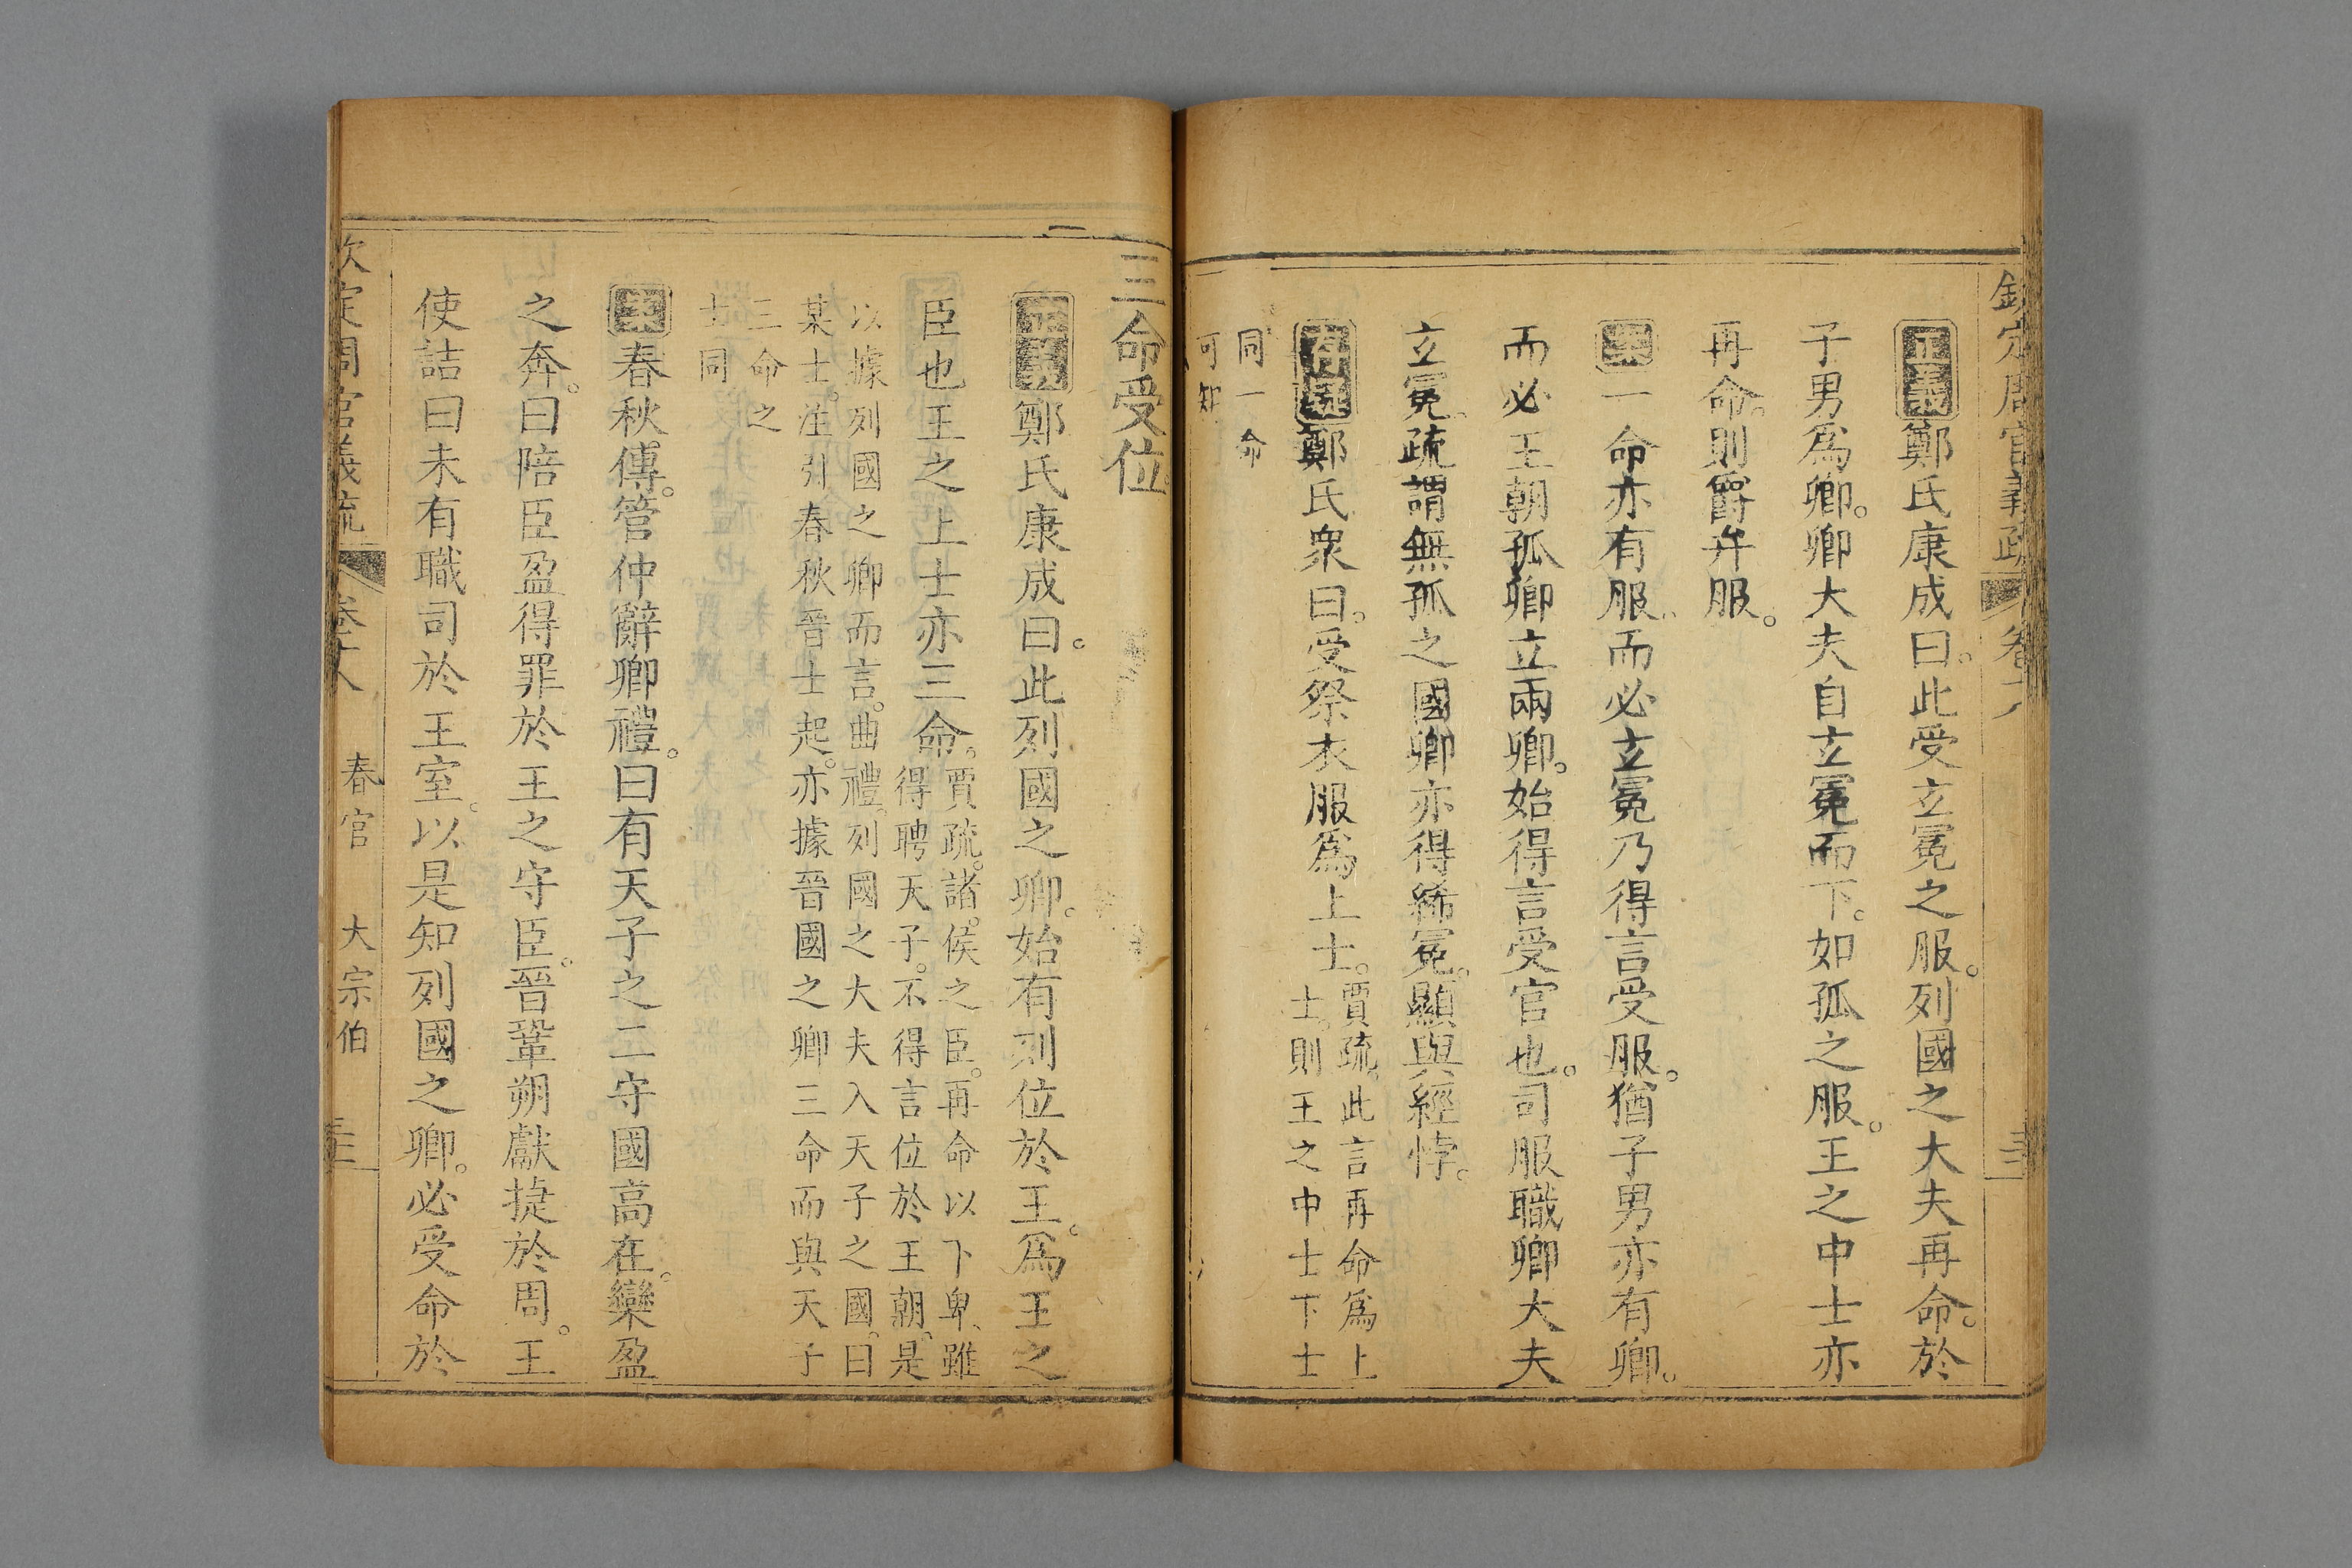 欽定周官義疏 卷十八
正義鄭氏康成曰。此受玄冕之服。列國之大夫再命。於
子男爲卿。卿大夫自玄冕而下。如孤之服。王之中士亦
再命。則爵弁服。
案一命亦有服。而必玄冕乃得言受服。猶子男亦有卿。
而必王朝孤卿立兩卿。始得言受官也。司服職卿大夫
玄冕。疏謂無孤之國卿亦得絺冕。顯與經悖。
存疑鄭氏衆曰。受祭衣服爲上士。
賈疏。此言再命爲上
士。則王之中士下士
同一命
可知
三命受位
正義鄭氏康成曰。此列國之卿。始有列位於王。爲王之
臣也王之上士亦三命。
賈疏。諸侯之臣。再命以下卑。雖
得聘天子。不得言位於王朝。是
以據列國之卿而言。曲禮。列國之大夫入天子之國。曰
某士。注引春秋晉士起。亦據晉國之卿三命而與天子
三命之
士同
案春秋傳。管仲辭卿禮。曰有天子之二守國高在。欒盈
之奔。曰陪臣盈得罪於王之守臣。晉鞏朔獻捷於周。王
使詰曰未有職司於王室。以是知列國之卿。必受命於
欽定周官義疏 卷十八 春官 大宗伯